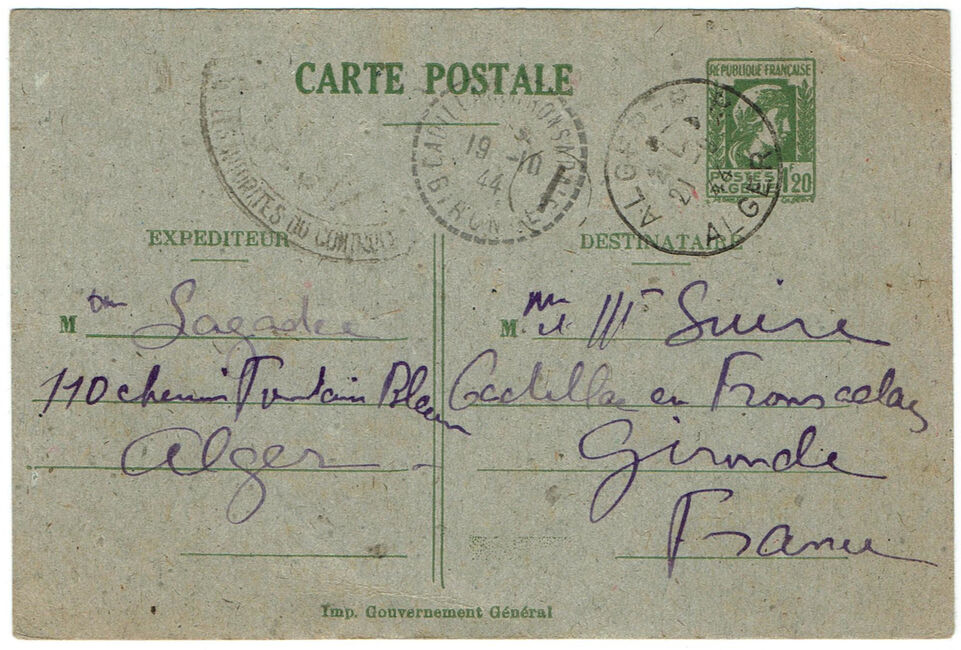 CARTE POSTALE
RÉPUBLIQUE FRANÇAISE
POSTES
ALGERIE
1F20
ALGER RP
ALGER
21
19 -10
44
GIRONDE
AUTORITÉS DU CONTROLE
EXPEDITEUR
Mme Lagadec
110 chemin Fontain Bleau
Alger
DESTINATAIRE
M Mr et Mme Suire
Cadillac en Fronsadais
Gironde
France
Imp. Gouvernement Général